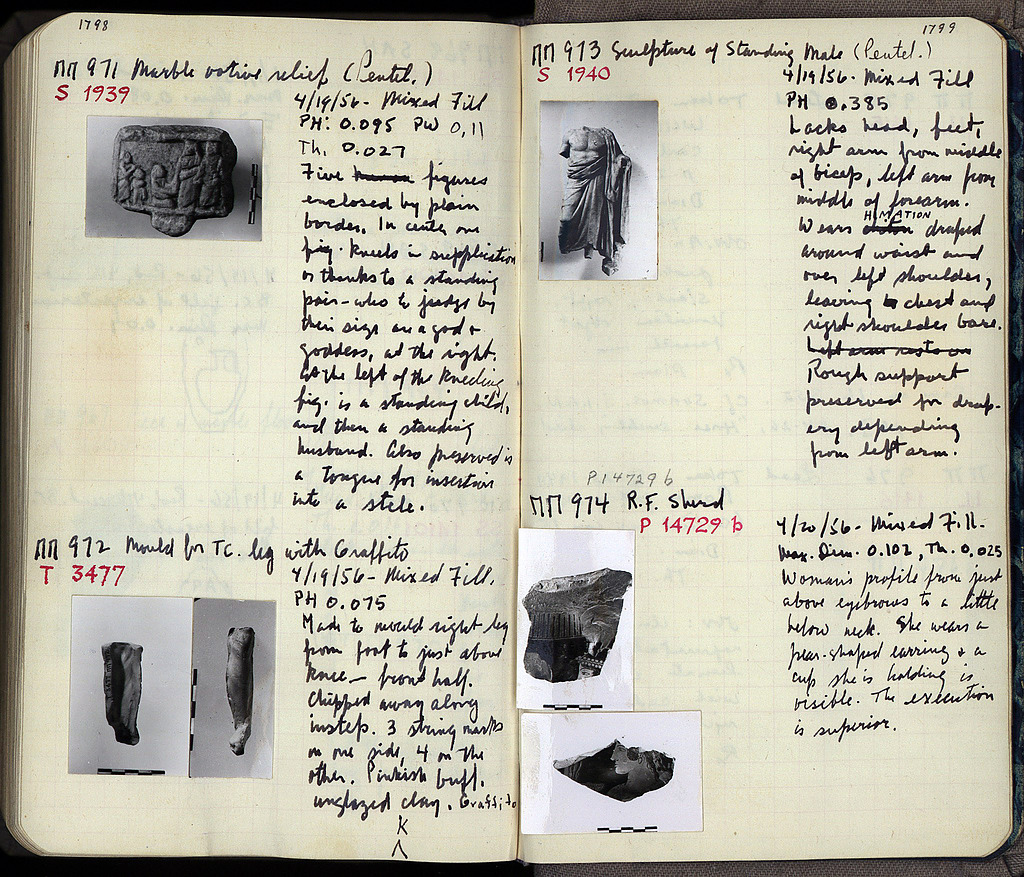 1798
ΠΠ 971 Marble votive relief (Pentel.)
S 1939
4/19/56 - Mixed Fill
PH: 0.095 PW 0,11
Th. 0.027
Five human figures
enclosed by plain
border. In center one
fig. kneels in supplication
or thanks to a standing
pair - who to judge by
their size are a god +
goddess, at the right.
At the left of the kneeling
fig. is a standing child,
and then a standing
husband. Also preserved is
a tongue for insertion
into a stele.
ΠΠ 972 Mould for TC. leg with Graffito
T 3477
4/19/56 - Mixed Fill.
PH 0.075
Made to mould right leg
from foot to just above
knee - front half.
Chipped away along
instep. 3 string marks
on one side, 4 on the
other. Pinkish buff.
unglazed clay. Graffito
K
Λ
1799
ΠΠ 973 Sculpture of Standing Male (Pentel.)
S 1940
4/19/56 - Mixed Fill
PH 0.385
Lacks head, feet,
right arm from middle
of biceps, left arm from
middle of forearm.
HIMATION
Wears chiton draped
around waist and
over left shoulder,
leaving chest and
right shoulder bare.
Left arm rests on
Rough support
preserved for drap-
ery depending
from left arm.
P 14729 b
ΠΠ 974 R.F. Sherd
P 14729 b
4/20/56 - Mixed Fill.
Max. Dim. 0.102, Th. 0,025
Woman's profile from just
above eyebrows to a little
below neck. She wears a
pear-shaped earring + a
cup she is holding is
visible. The execution
is superior.